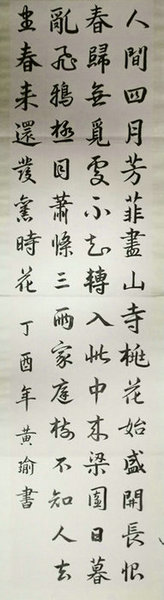 人間四月芳菲盡山寺桃花始盛開長恨
春歸無覓處不知轉入此中來梁園日暮
亂飛鴉極目蕭條三兩家庭樹不知人去
盡春來還發舊時花 丁酉年黃瑜書